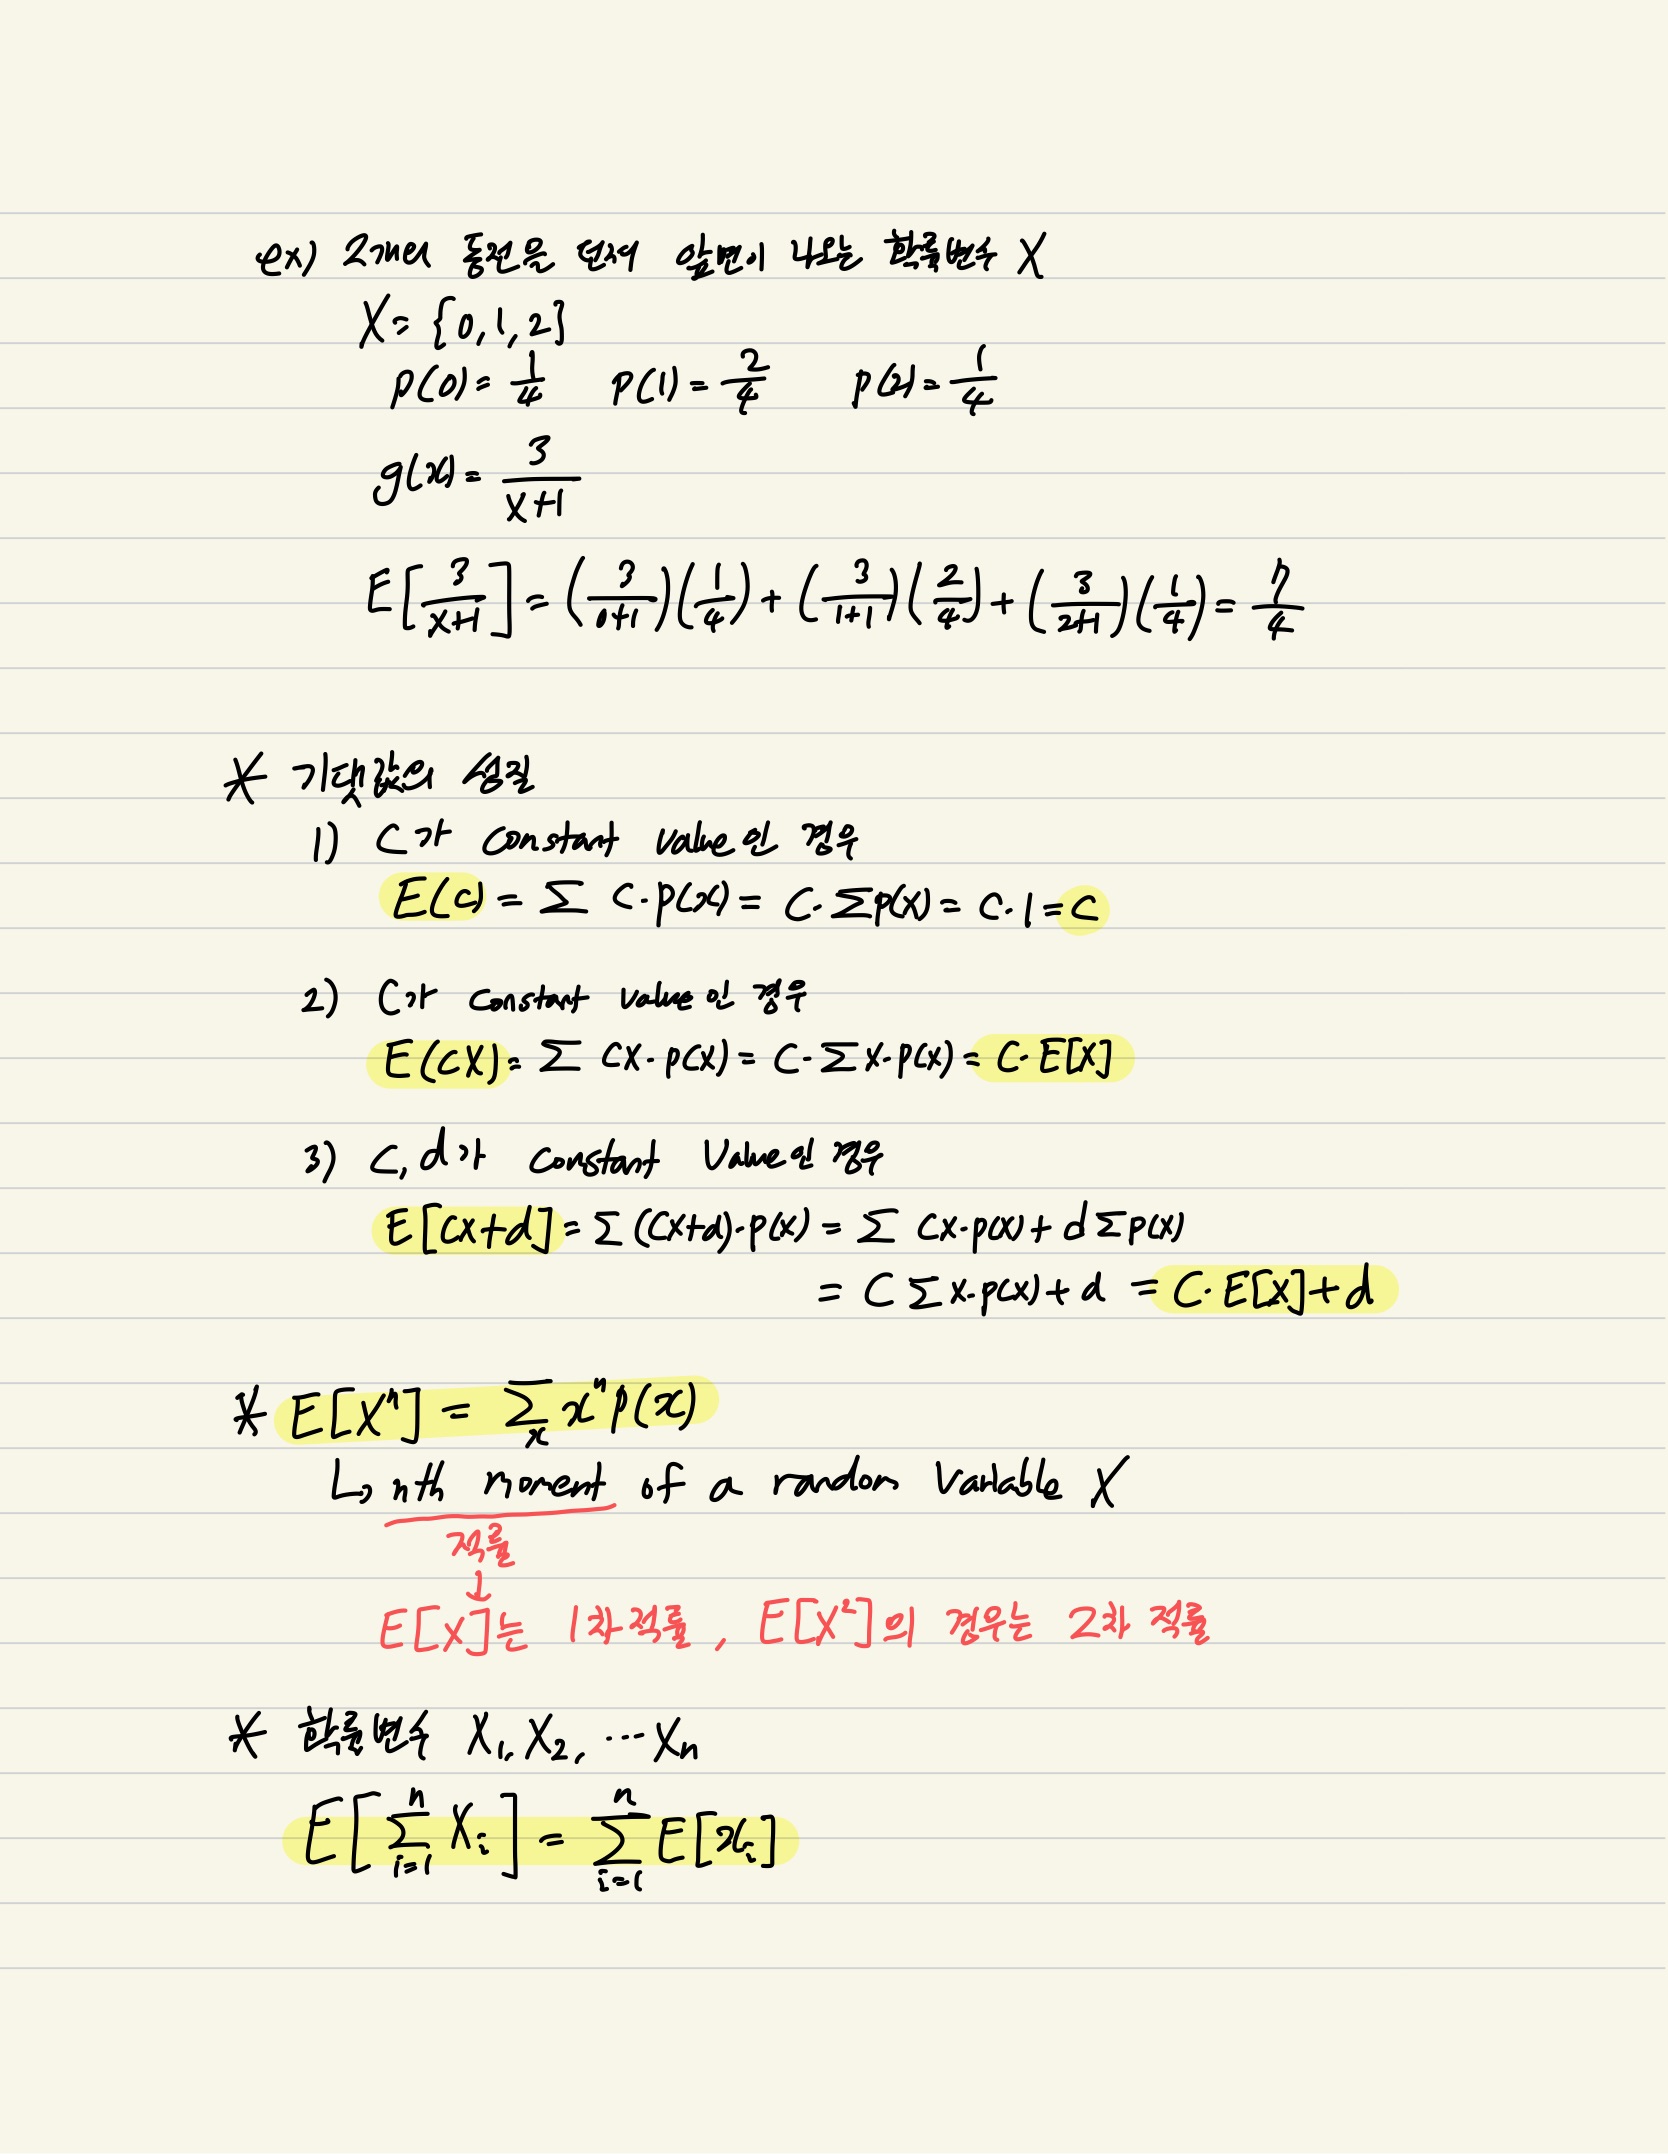 ex) 2개의 동전을 던져 앞면이 나오는 확률변수 X
X = {0, 1, 2}
p(0) = 1/4 p(1) = 2/4 p(2) = 1/4
g(x) = 3/(x+1)
E[3/(x+1)] = (3/(0+1))(1/4) + (3/(1+1))(2/4) + (3/(2+1))(1/4) = 7/4
* 기댓값의 성질
1) C가 constant value인 경우
E(c) = Σ C·p(x) = C·Σp(x) = C·1 = C
2) C가 constant value인 경우
E(CX) = Σ CX·p(x) = C·Σx·p(x) = C·E[X]
3) C, d가 constant Value인 경우
E[CX+d] = Σ(CX+d)·p(x) = Σ CX·p(x) + dΣp(x)
= C Σx·p(x) + d = C·E[X] + d
* E[Xⁿ] = Σₓ xⁿp(x)
↳ nth moment of a random Variable X
적률
↓
E[X]는 1차 적률, E[X²]의 경우는 2차 적률
* 확률변수 X₁, X₂, ... Xₙ
E[Σᵢ₌₁ⁿ Xᵢ] = Σᵢ₌₁ⁿ E[xᵢ]